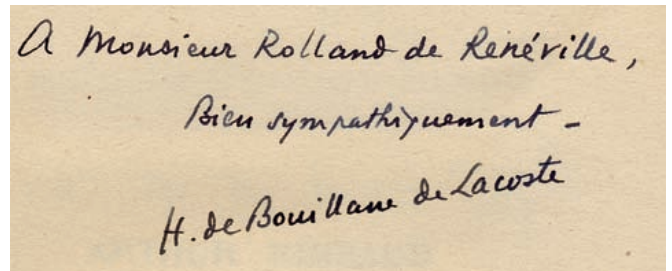 A Monsieur Rolland de Renéville,
Bien sympathiquement -
H. de Bouillane de Lacoste